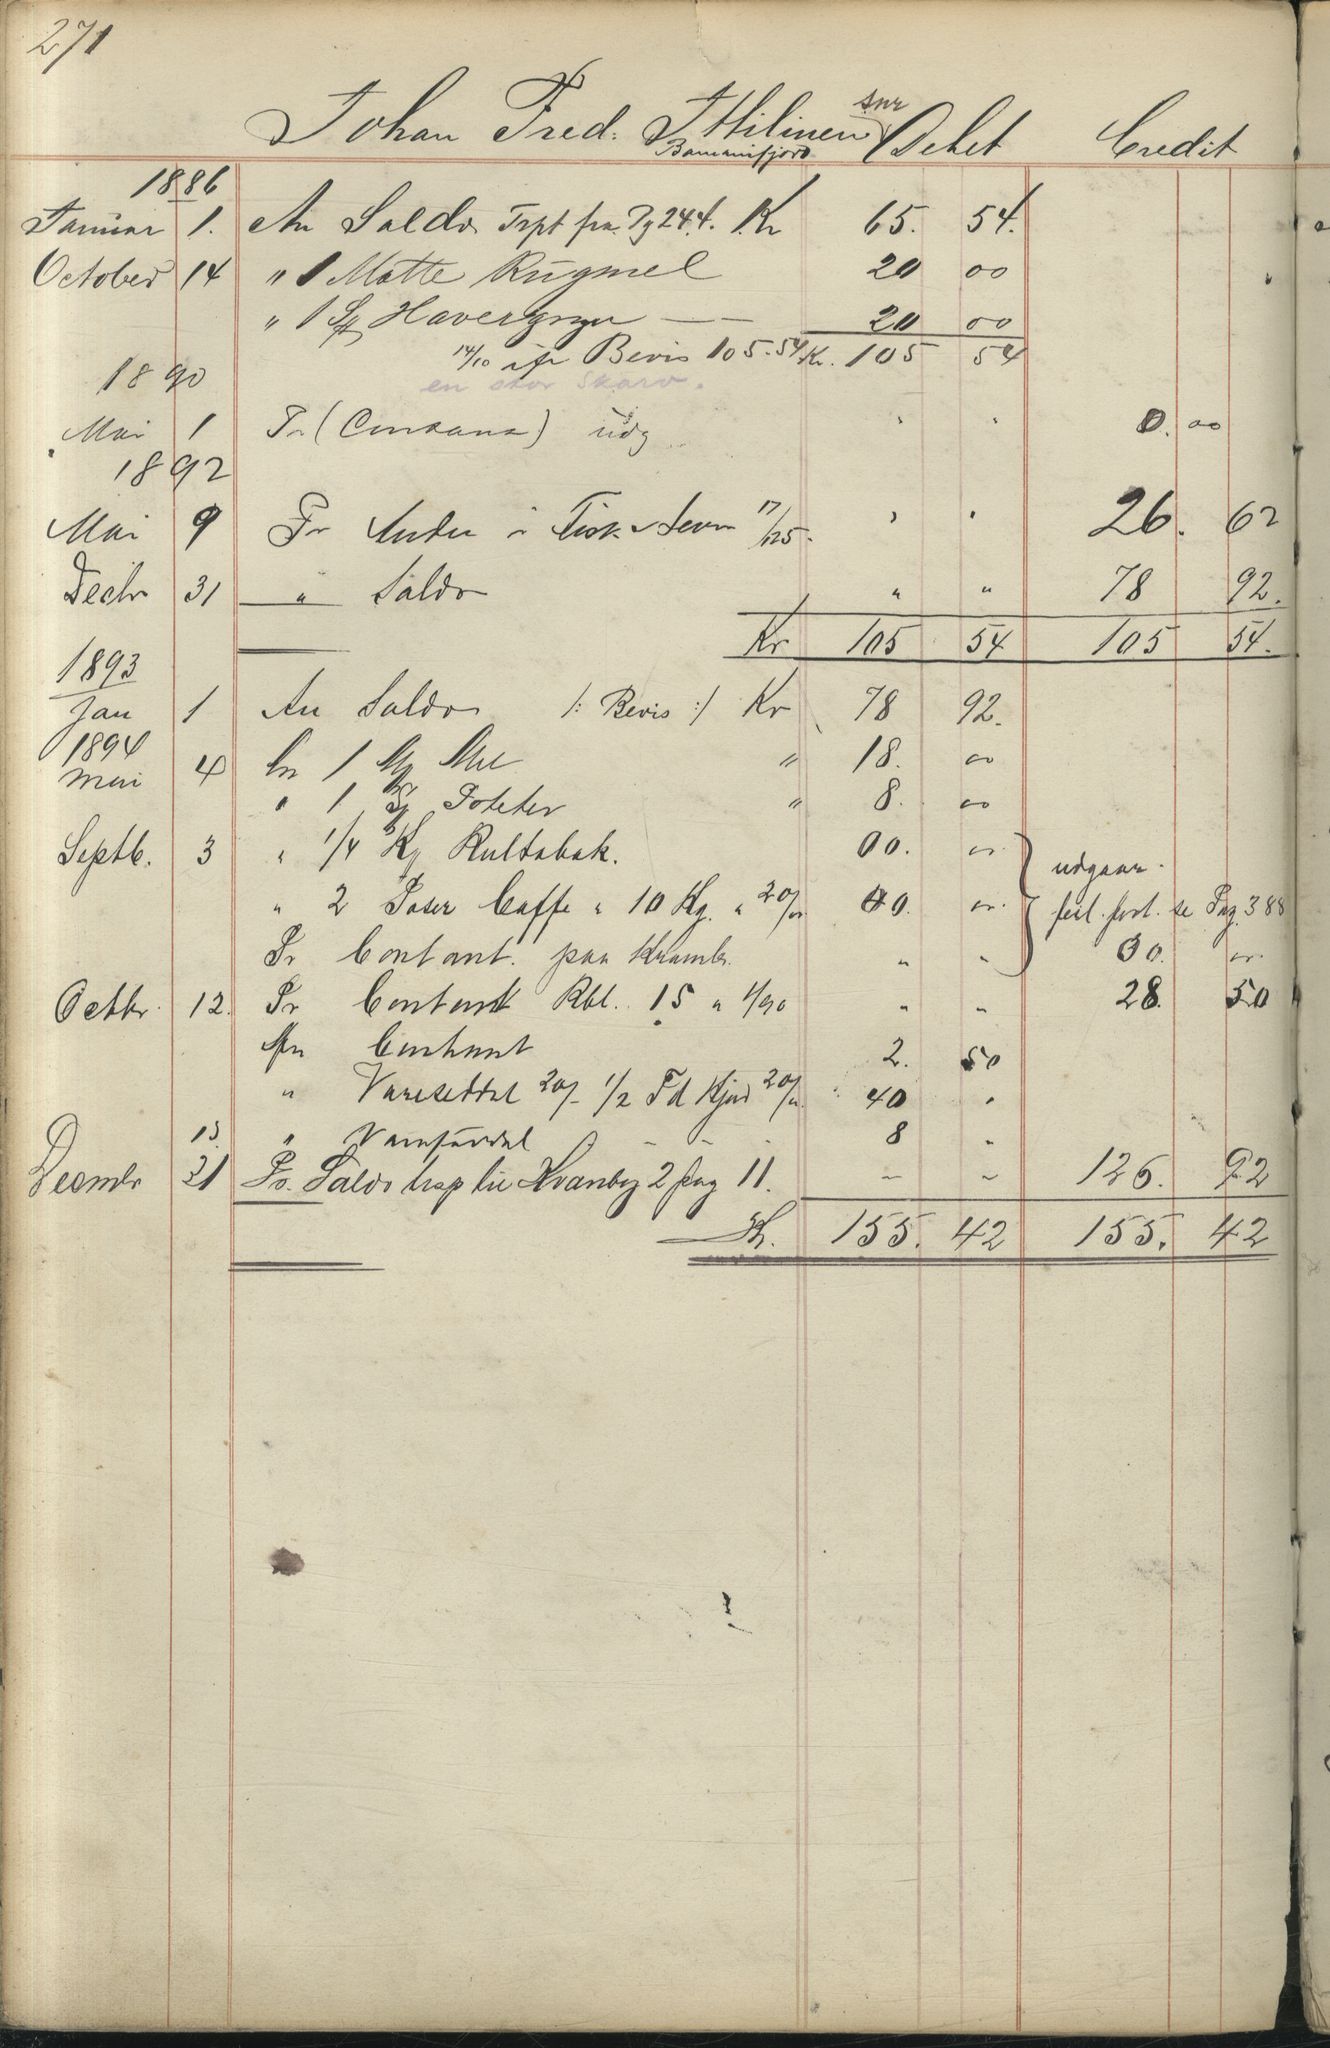 271
Johan Fred. Ittilinen snr Debet Credit
1886
Januar 1. An Saldo Trpt fra Pg 244. Kr 65. 54.
October 14 " 1 Matte Rugmel 20 00
" 1 Sk Havergryn — — 20 00
14/10 Bevis 105.54 Kr. 105 54
en stor Skarv.
1890
Mai 1 Pr (Contant) udg " " 0. 00
1892
Mai 9 Pr Andel i Fisk 17/125. " " 26. 62
Decbr 31 " Saldo " " 78 92.
Kr 105 54 105 54.
1893
Jan 1 An Saldo /: Bevis :/ Kr 78 92.
1894
Mai 4 An 1 Mel " 18. 00
" 1 Sk Poteter " 8. 00
Septb. 3 " 1/4 Kg Rultobak. 00. 00
udgaar.
" 2 Poser Caffe a 10 Kg. a 20/ 00. 00. feil ført. se Pag. 388
Pr Contant. paa Krambr. " " 00. 00.
Octbr. 12. Pr Contant Rbl. 15 a 1/90 " " 28. 50
An Contant 2. 50
" Vareseddel 20/- 1/2 Td 20/ 40 "
13. " Vareseddel - - - 8 "
Decmbr 31 Pr. Saldo trsp til Kvanby 2 pag 11. " " 126. 92
Kr. 155. 42 155. 42